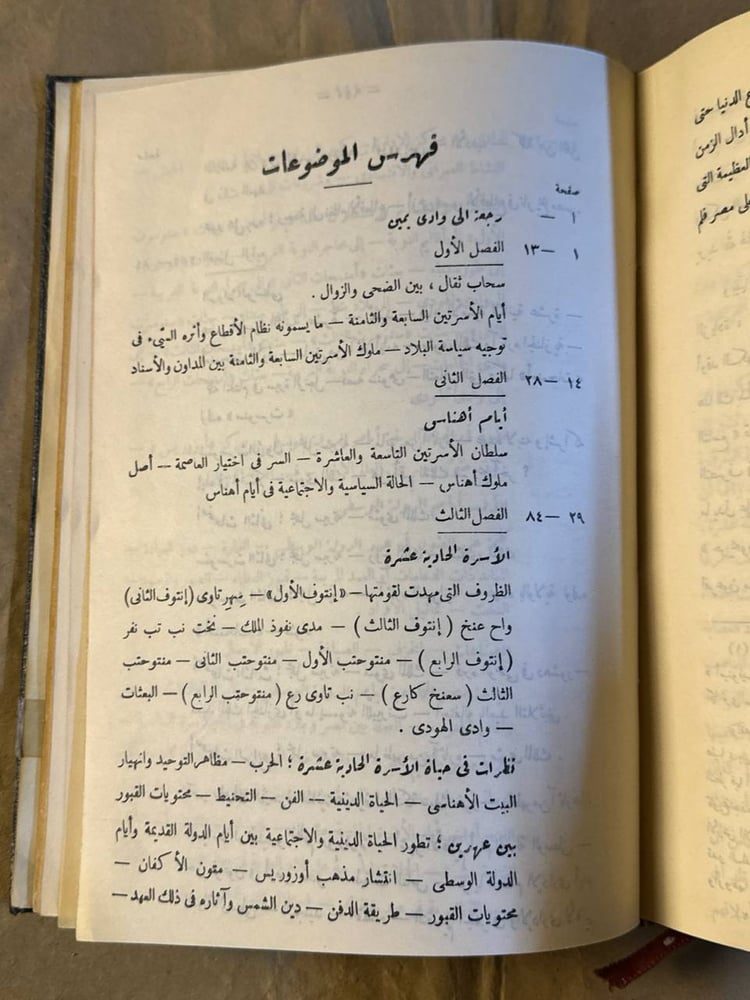 فهرس الموضوعات
صفحة
١ — رجعة الى وادى يمين
١ — ١٣ الفصل الأول
سحاب ثقال ، بين الضحى والزوال .
أيام الأسرتين السابعة والثامنة — ما يسمونه نظام الأقطاع وأثره السَّيء فى
توجيه سياسة البلاد — ملوك الأسرتين السابعة والثامنة بين المداون والأسناد
١٤ — ٢٨ الفصل الثانى
أيام أهناسى
سلطان الأسرتين التاسعة والعاشرة — السر فى اختيار العاصمة — أصل
ملوك أهناس — الحالة السياسية والاجتماعية فى أيام أهناس
٢٩ — ٨٤ الفصل الثالث
الأسرة الحادية عشرة
الظروف التى مهدت لقومتها — «إنتوف الأول» — سهر تاوى (إنتوف الثانى)
واح عنخ ( إنتوف الثالث ) — مدى نفوذ الملك — نخت نب تب نفر
( إنتوف الرابع ) — منتوحتب الأول — منتوحتب الثانى — منتوحتب
الثالث ( سعنخ كارع ) — نب تاوى رع ( منتوحتب الرابع ) — البعثات
— وادى الهودى .
نظرات فى حياة الأسرة الحادية عشرة ؛ الحرب — مظاهر التوحيد وانهيار
البيت الأهناسى — الحياة الدينية — الفن — التحنيط — محتويات القبور
بين عهدين ؛ تطور الحياة الدينية والاجتماعية بين أيام الدولة القديمة وأيام
الدولة الوسطى — انتشار مذهب أوزوريس — متون الأكفان —
محتويات القبور — طريقة الدفن — دين الشمس وآثاره فى ذلك العهد —
الدنيا حتى
أدال الزمن
العظيمة التى
مصر فلم